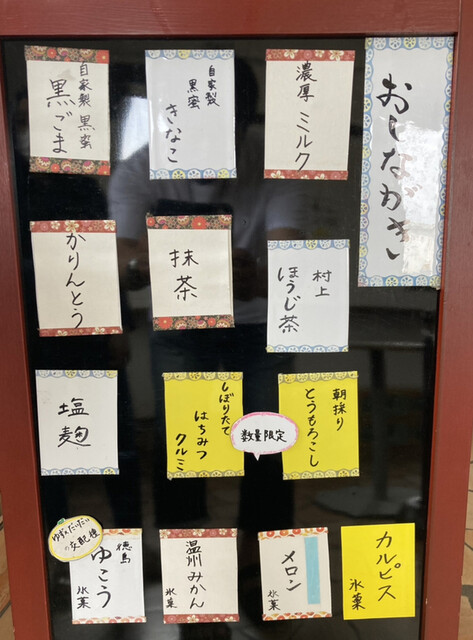 おしながき
濃厚ミルク
自家製
黒蜜
きなこ
自家製 黒蜜
黒ごま
村上
ほうじ茶
抹茶
かりんとう
朝採り
とうもろこし
数量限定
しぼりたて
はちみつ
クルミ
塩麹
カルピス
氷菓
メロン
氷菓
温州みかん
氷菓
ゆずとだいだい
の交配種
徳島
ゆこう
氷菓